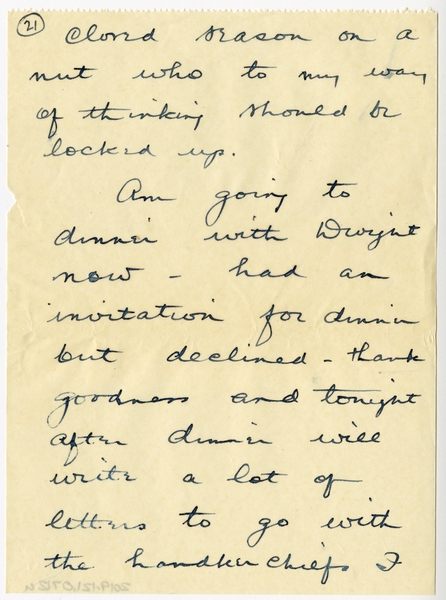 21
closed season on a
nut who to my way
of thinking should be
locked up.
Am going to
dinner with Dwight
now – had an
invitation for dinner
but declined – thank
goodness and tonight
after dinner will
write a lot of
letters to go with
the handkerchiefs I